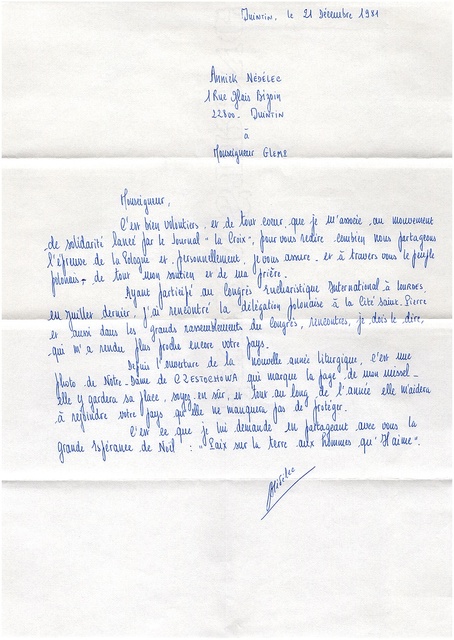 Quintin, le 21 Décembre 1981
Annick NÉDÉLEC
1 Rue Glais Bizoin
22800 - Quintin
à
Monseigneur GLEMP
Monseigneur,
C'est bien volontiers, et de tout coeur que je m'associe au mouvement
de solidarité lancé par le Journal "la Croix", pour vous redire combien nous partageons
l'épreuve de la Pologne et, personnellement, je vous assure - et à travers vous le peuple
polonais - de tout mon soutien et de ma prière.
Ayant participé au Congrès Eucharistique International à Lourdes,
en juillet dernier, j'ai rencontré la délégation polonaise à la Cité Saint-Pierre
et aussi dans les grands rassemblements du Congrès, rencontres, je dois le dire,
qui m'a rendu plus proche encore votre pays.
Depuis l'ouverture de la nouvelle année liturgique, c'est une
photo de Notre-Dame de CZESTOCHOWA qui marque la page de mon missel -
elle y gardera sa place, soyez en sûr, et tout au long de l'année elle m'aidera
à rejoindre votre pays qu'elle ne manquera pas de protéger.
C'est ce que je lui demande en partageant avec vous la
grande Espérance de Noël : "Paix sur la terre aux hommes qu'Il aime".
ANédélec